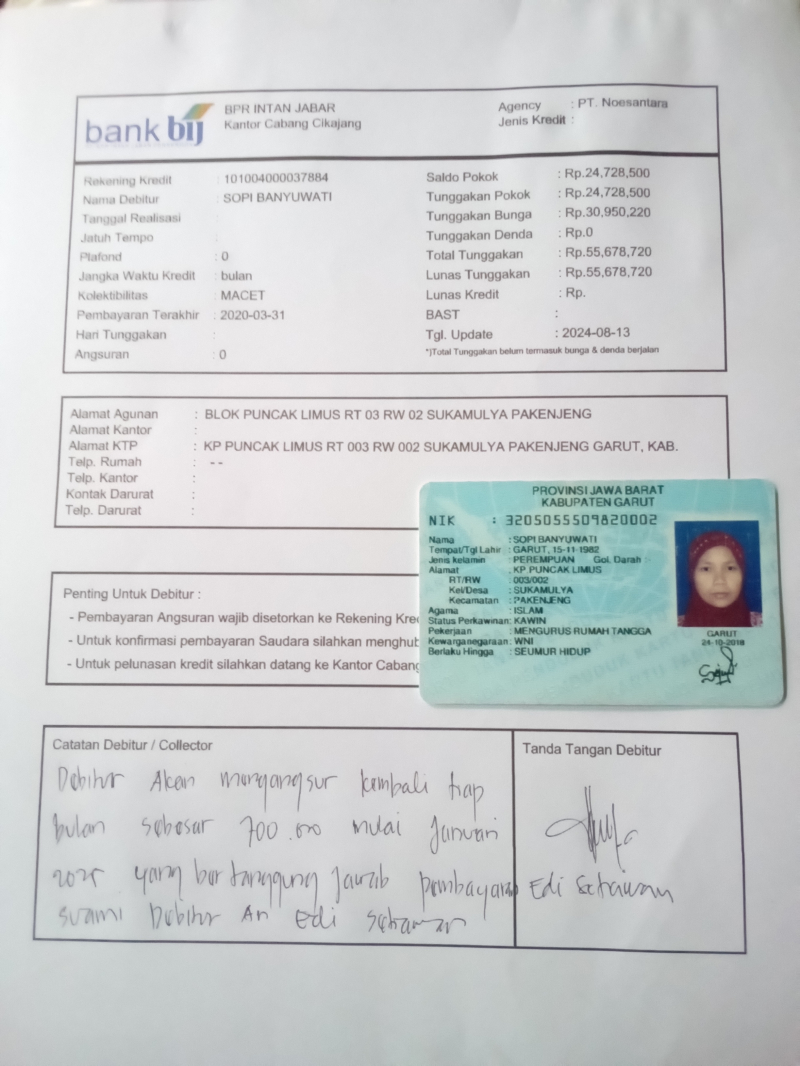 bank bij
BPR INTAN JABAR
Kantor Cabang Cikajang
Agency : PT. Noesantara
Jenis Kredit :
Rekening Kredit : 101004000037884
Nama Debitur : SOPI BANYUWATI
Tanggal Realisasi :
Jatuh Tempo :
Plafond : 0
Jangka Waktu Kredit : bulan
Kolektibilitas : MACET
Pembayaran Terakhir : 2020-03-31
Hari Tunggakan :
Angsuran : 0
Saldo Pokok : Rp.24,728,500
Tunggakan Pokok : Rp.24,728,500
Tunggakan Bunga : Rp.30,950,220
Tunggakan Denda : Rp.0
Total Tunggakan : Rp.55,678,720
Lunas Tunggakan : Rp.55,678,720
Lunas Kredit : Rp.
BAST :
Tgl. Update : 2024-08-13
*)Total Tunggakan belum termasuk bunga & denda berjalan
Alamat Agunan : BLOK PUNCAK LIMUS RT 03 RW 02 SUKAMULYA PAKENJENG
Alamat Kantor :
Alamat KTP : KP PUNCAK LIMUS RT 003 RW 002 SUKAMULYA PAKENJENG GARUT, KAB.
Telp. Rumah : --
Telp. Kantor :
Kontak Darurat :
Telp. Darurat :
PROVINSI JAWA BARAT
KABUPATEN GARUT
NIK : 3205055509820002
Nama : SOPI BANYUWATI
Tempat/Tgl Lahir : GARUT, 15-11-1982
Jenis kelamin : PEREMPUAN Gol. Darah :
Alamat : KP PUNCAK LIMUS
RT/RW : 003/002
Kel/Desa : SUKAMULYA
Kecamatan : PAKENJENG
Agama : ISLAM
Status Perkawinan: KAWIN
Pekerjaan : MENGURUS RUMAH TANGGA
Kewarganegaraan: WNI
Berlaku Hingga : SEUMUR HIDUP
GARUT
24-10-2018
Penting Untuk Debitur :
- Pembayaran Angsuran wajib disetorkan ke Rekening Kre
- Untuk konfirmasi pembayaran Saudara silahkan menghub
- Untuk pelunasan kredit silahkan datang ke Kantor Cabang
Catatan Debitur / Collector
Debitur Akan mengangsur kembali tiap
bulan sebesar 700.000 mulai Januari
2025 yang bertanggung jawab pembayaran
suami Debitur An Edi Setiawan
Tanda Tangan Debitur
Edi Setiawan